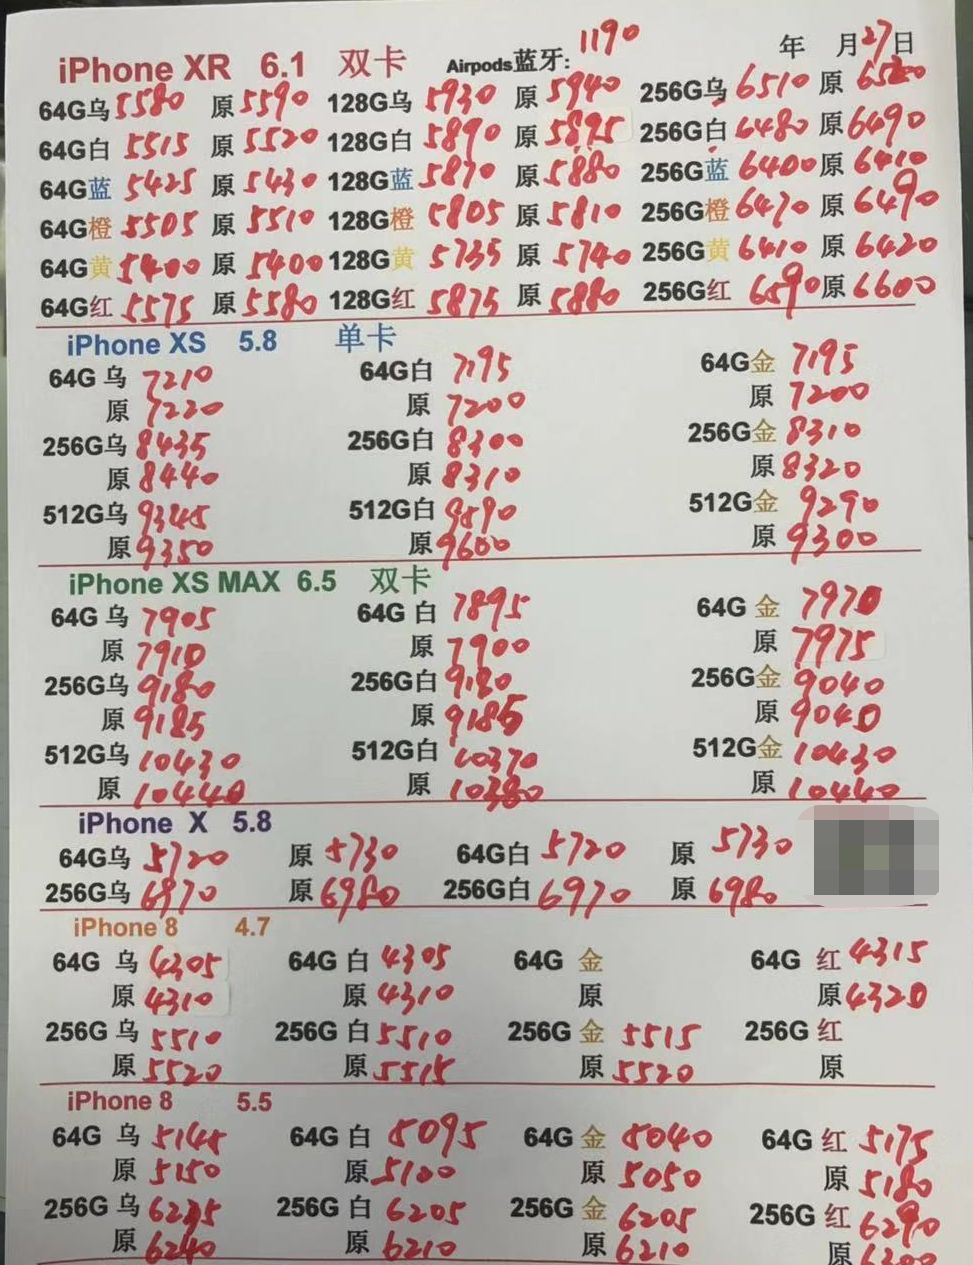 iPhone XR 6.1 双卡 Airpods蓝牙: 1190 年 月27日
64G乌 5580 原 5590 128G乌 5930 原 5940 256G乌 6510 原
64G白 5515 原 5520 128G白 5890 原 5895 256G白 6480 原 6490
64G蓝 5425 原 5430 128G蓝 5870 原 5880 256G蓝 6400 原 6410
64G橙 5505 原 5510 128G橙 5805 原 5810 256G橙 6470 原 6490
64G黄 5400 原 5400 128G黄 5735 原 5740 256G黄 6410 原 6420
64G红 5575 原 5580 128G红 5875 原 5880 256G红 6590 原 6600
iPhone XS 5.8 单卡
64G 乌 7210 64G白 7195 64G金 7195
原 7220 原 7200 原 7200
256G乌 8435 256G白 8300 256G金 8310
原 8440 原 8310 原 8320
512G乌 9345 512G白 9590 512G金 9290
原 9350 原 9600 原 9300
iPhone XS MAX 6.5 双卡
64G 乌 7905 64G 白 7895 64G 金 7970
原 7910 原 7900 原 7975
256G乌 9180 256G白 9180 256G金 9040
原 9185 原 9185 原 9040
512G乌 10430 512G白 10370 512G金 10430
原 10440 原 10380 原 10440
iPhone X 5.8
64G乌 5720 原 5730 64G白 5720 原 5730
256G乌 6970 原 6980 256G白 6970 原 6980
iPhone 8 4.7
64G 乌 4305 64G 白 4305 64G 金 64G 红 4315
原 4310 原 4310 原 原 4320
256G 乌 5510 256G 白 5510 256G 金 5515 256G 红
原 5520 原 5515 原 5520 原
iPhone 8 5.5
64G 乌 5145 64G 白 5095 64G 金 5040 64G 红 5175
原 5150 原 5100 原 5050 原 5180
256G 乌 6235 256G 白 6205 256G 金 6205 256G 红 6290
原 6240 原 6210 原 6210 原 6300